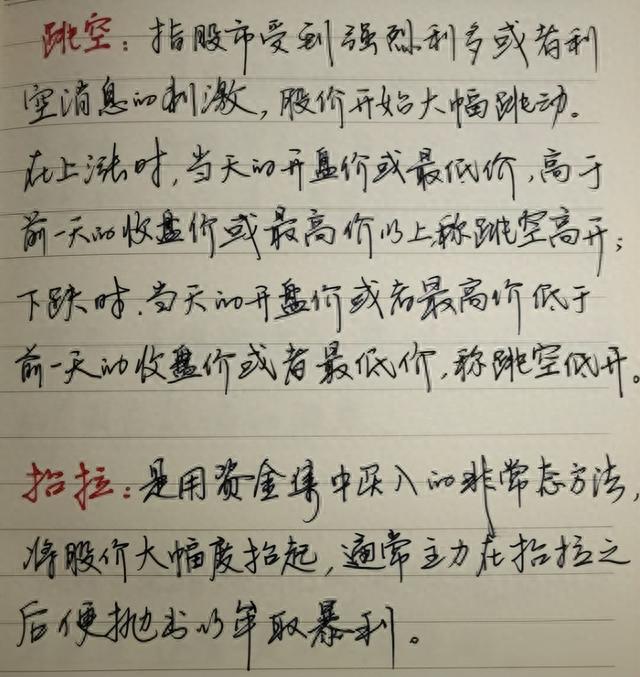 跳空：指股市受到强烈利多或者利
空消息的刺激，股价开始大幅跳动。
在上涨时，当天的开盘价或最低价，高于
前一天的收盘价或最高价以上，称跳空高开；
下跌时，当天的开盘价或者最高价低于
前一天的收盘价或者最低价，称跳空低开。
抬拉：是用资金集中买入的非常态方法，
将股价大幅度抬起，通常主力在抬拉之
后便抛出以牟取暴利。